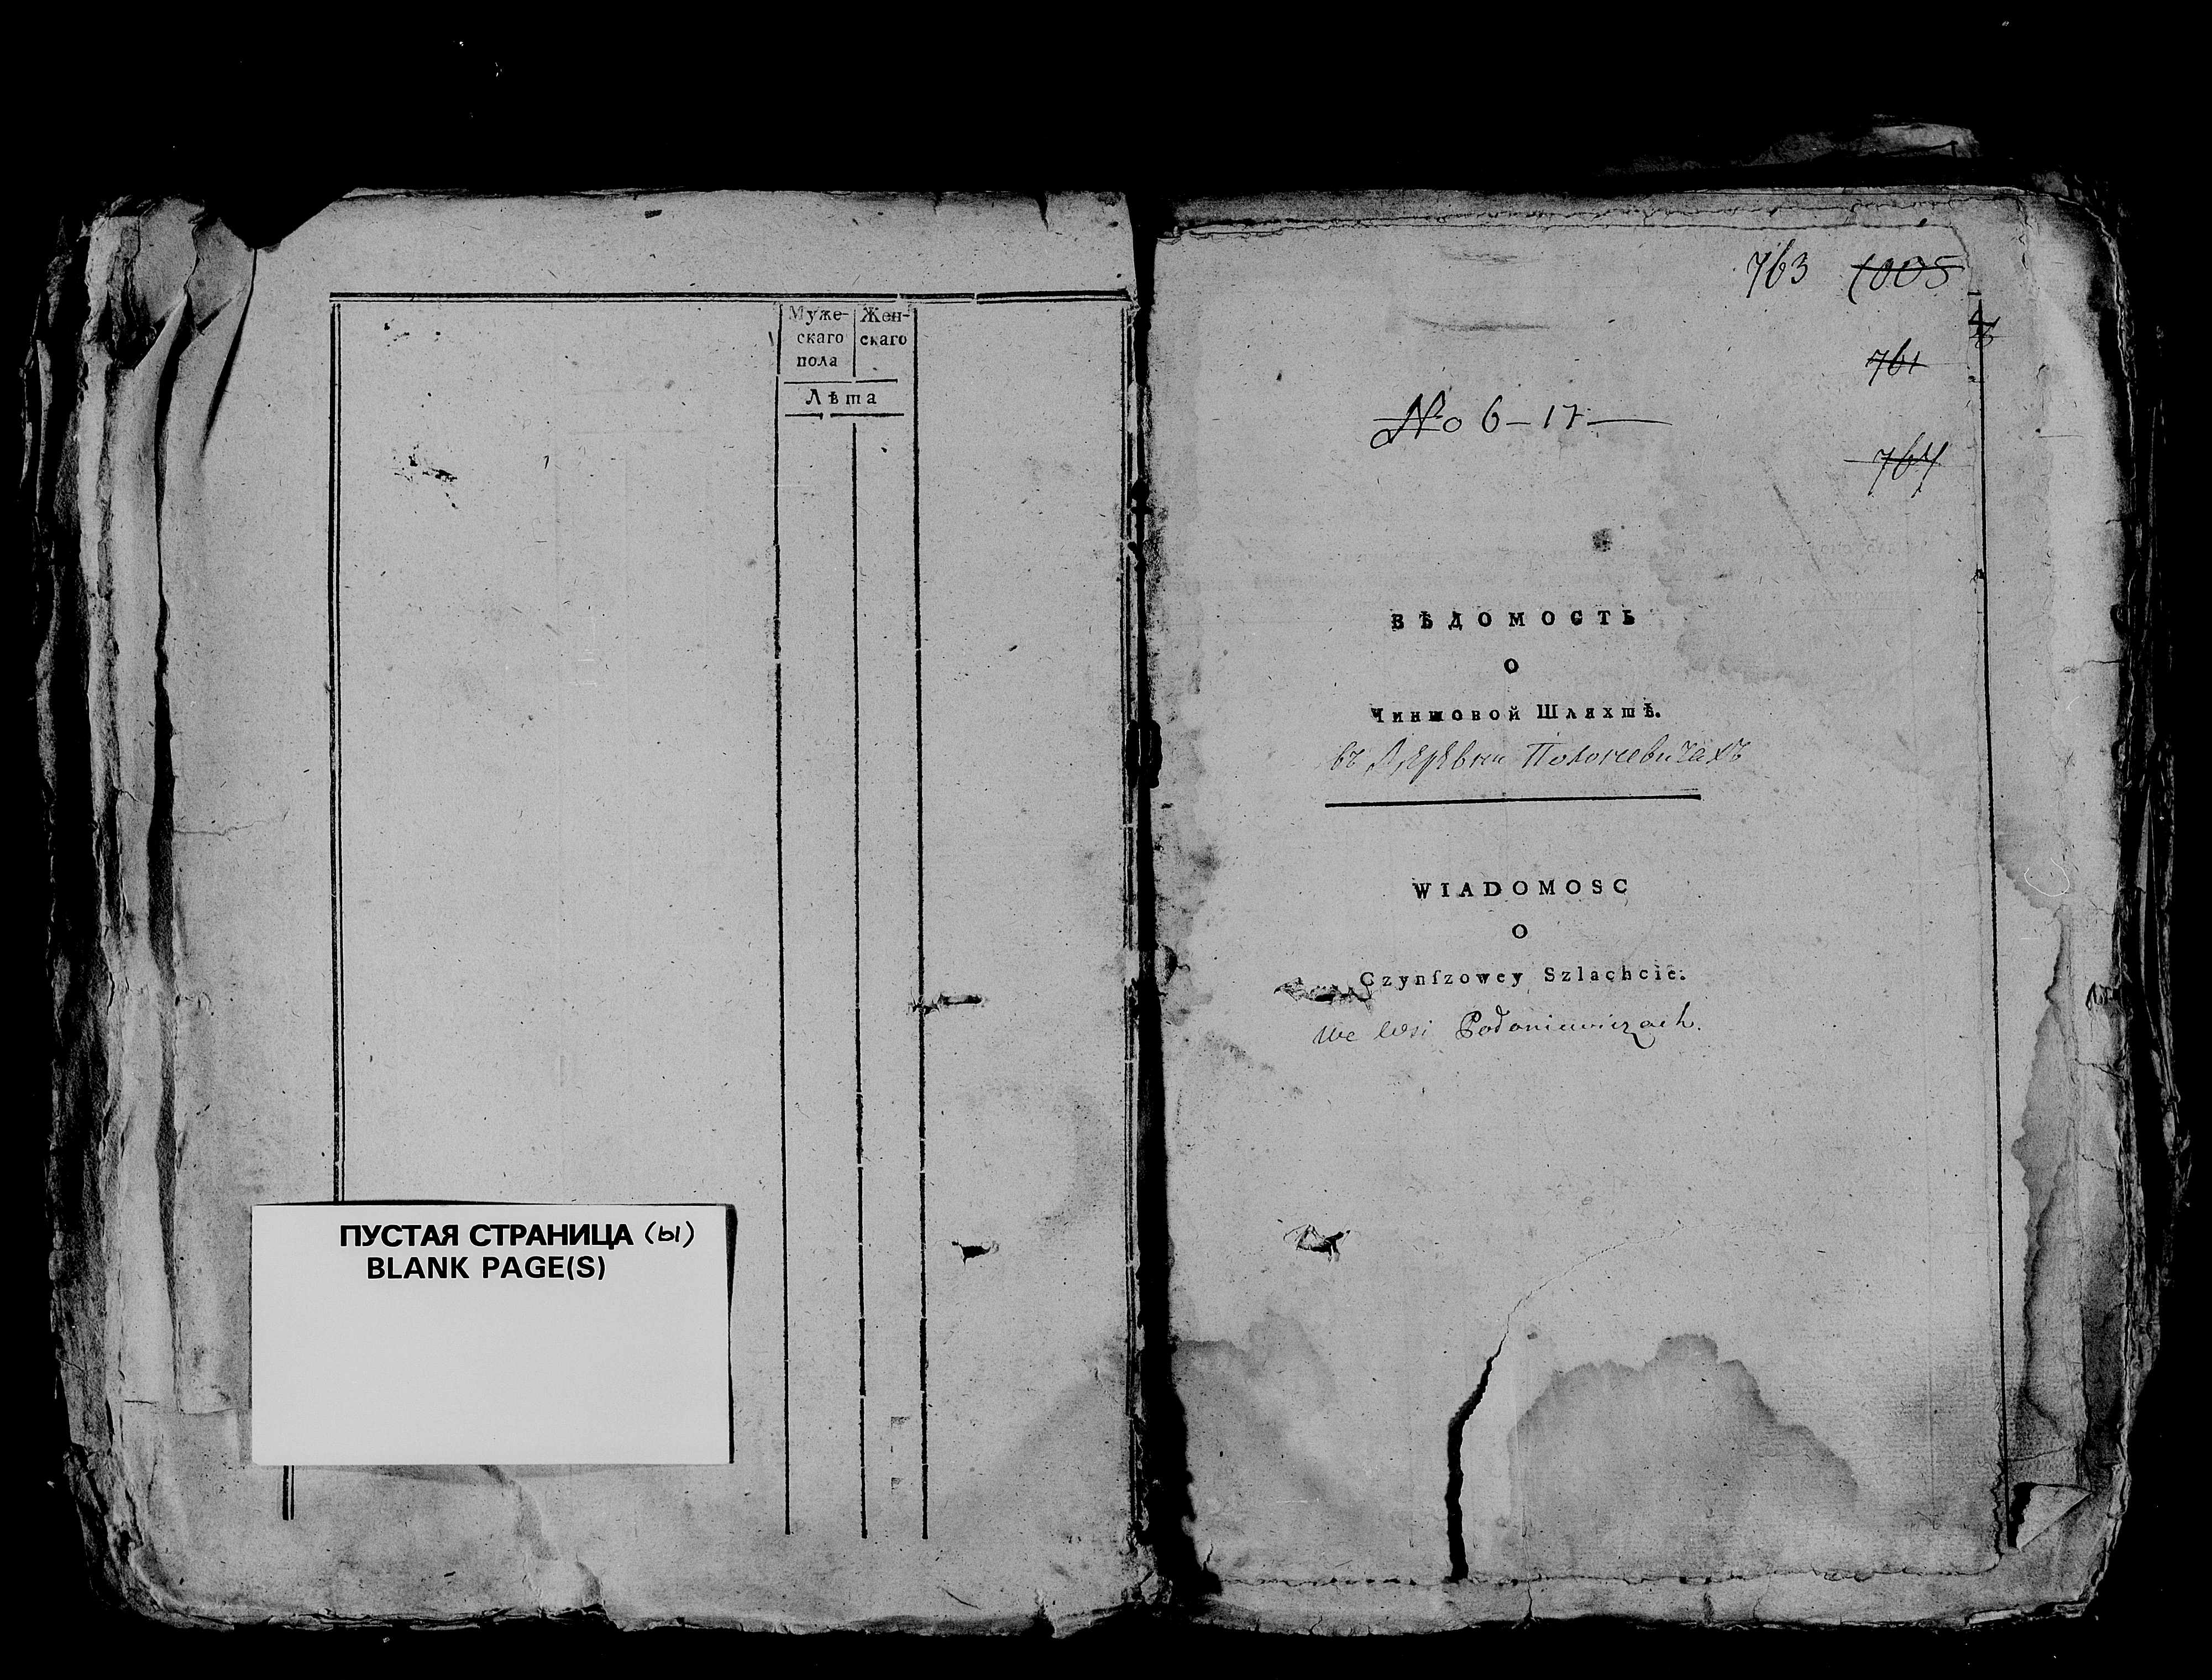 Муже- Жен-
скаго скаго
пола
Лѣта
ПУСТАЯ СТРАНИЦА (ы)
BLANK PAGE(S)
763 1005
761
No 6-17
764
ВѢДОМОСТЬ
О
Чиншовой Шляхтѣ.
въ Деревни
WIADOMOSC
O
Czynſzowey Szlachcie.
we Wsi Podoniewiczach.